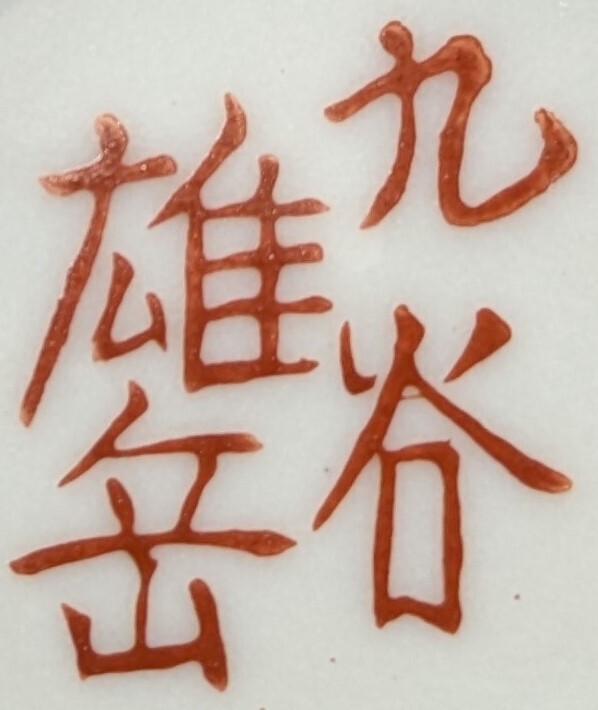 九谷
雄岳